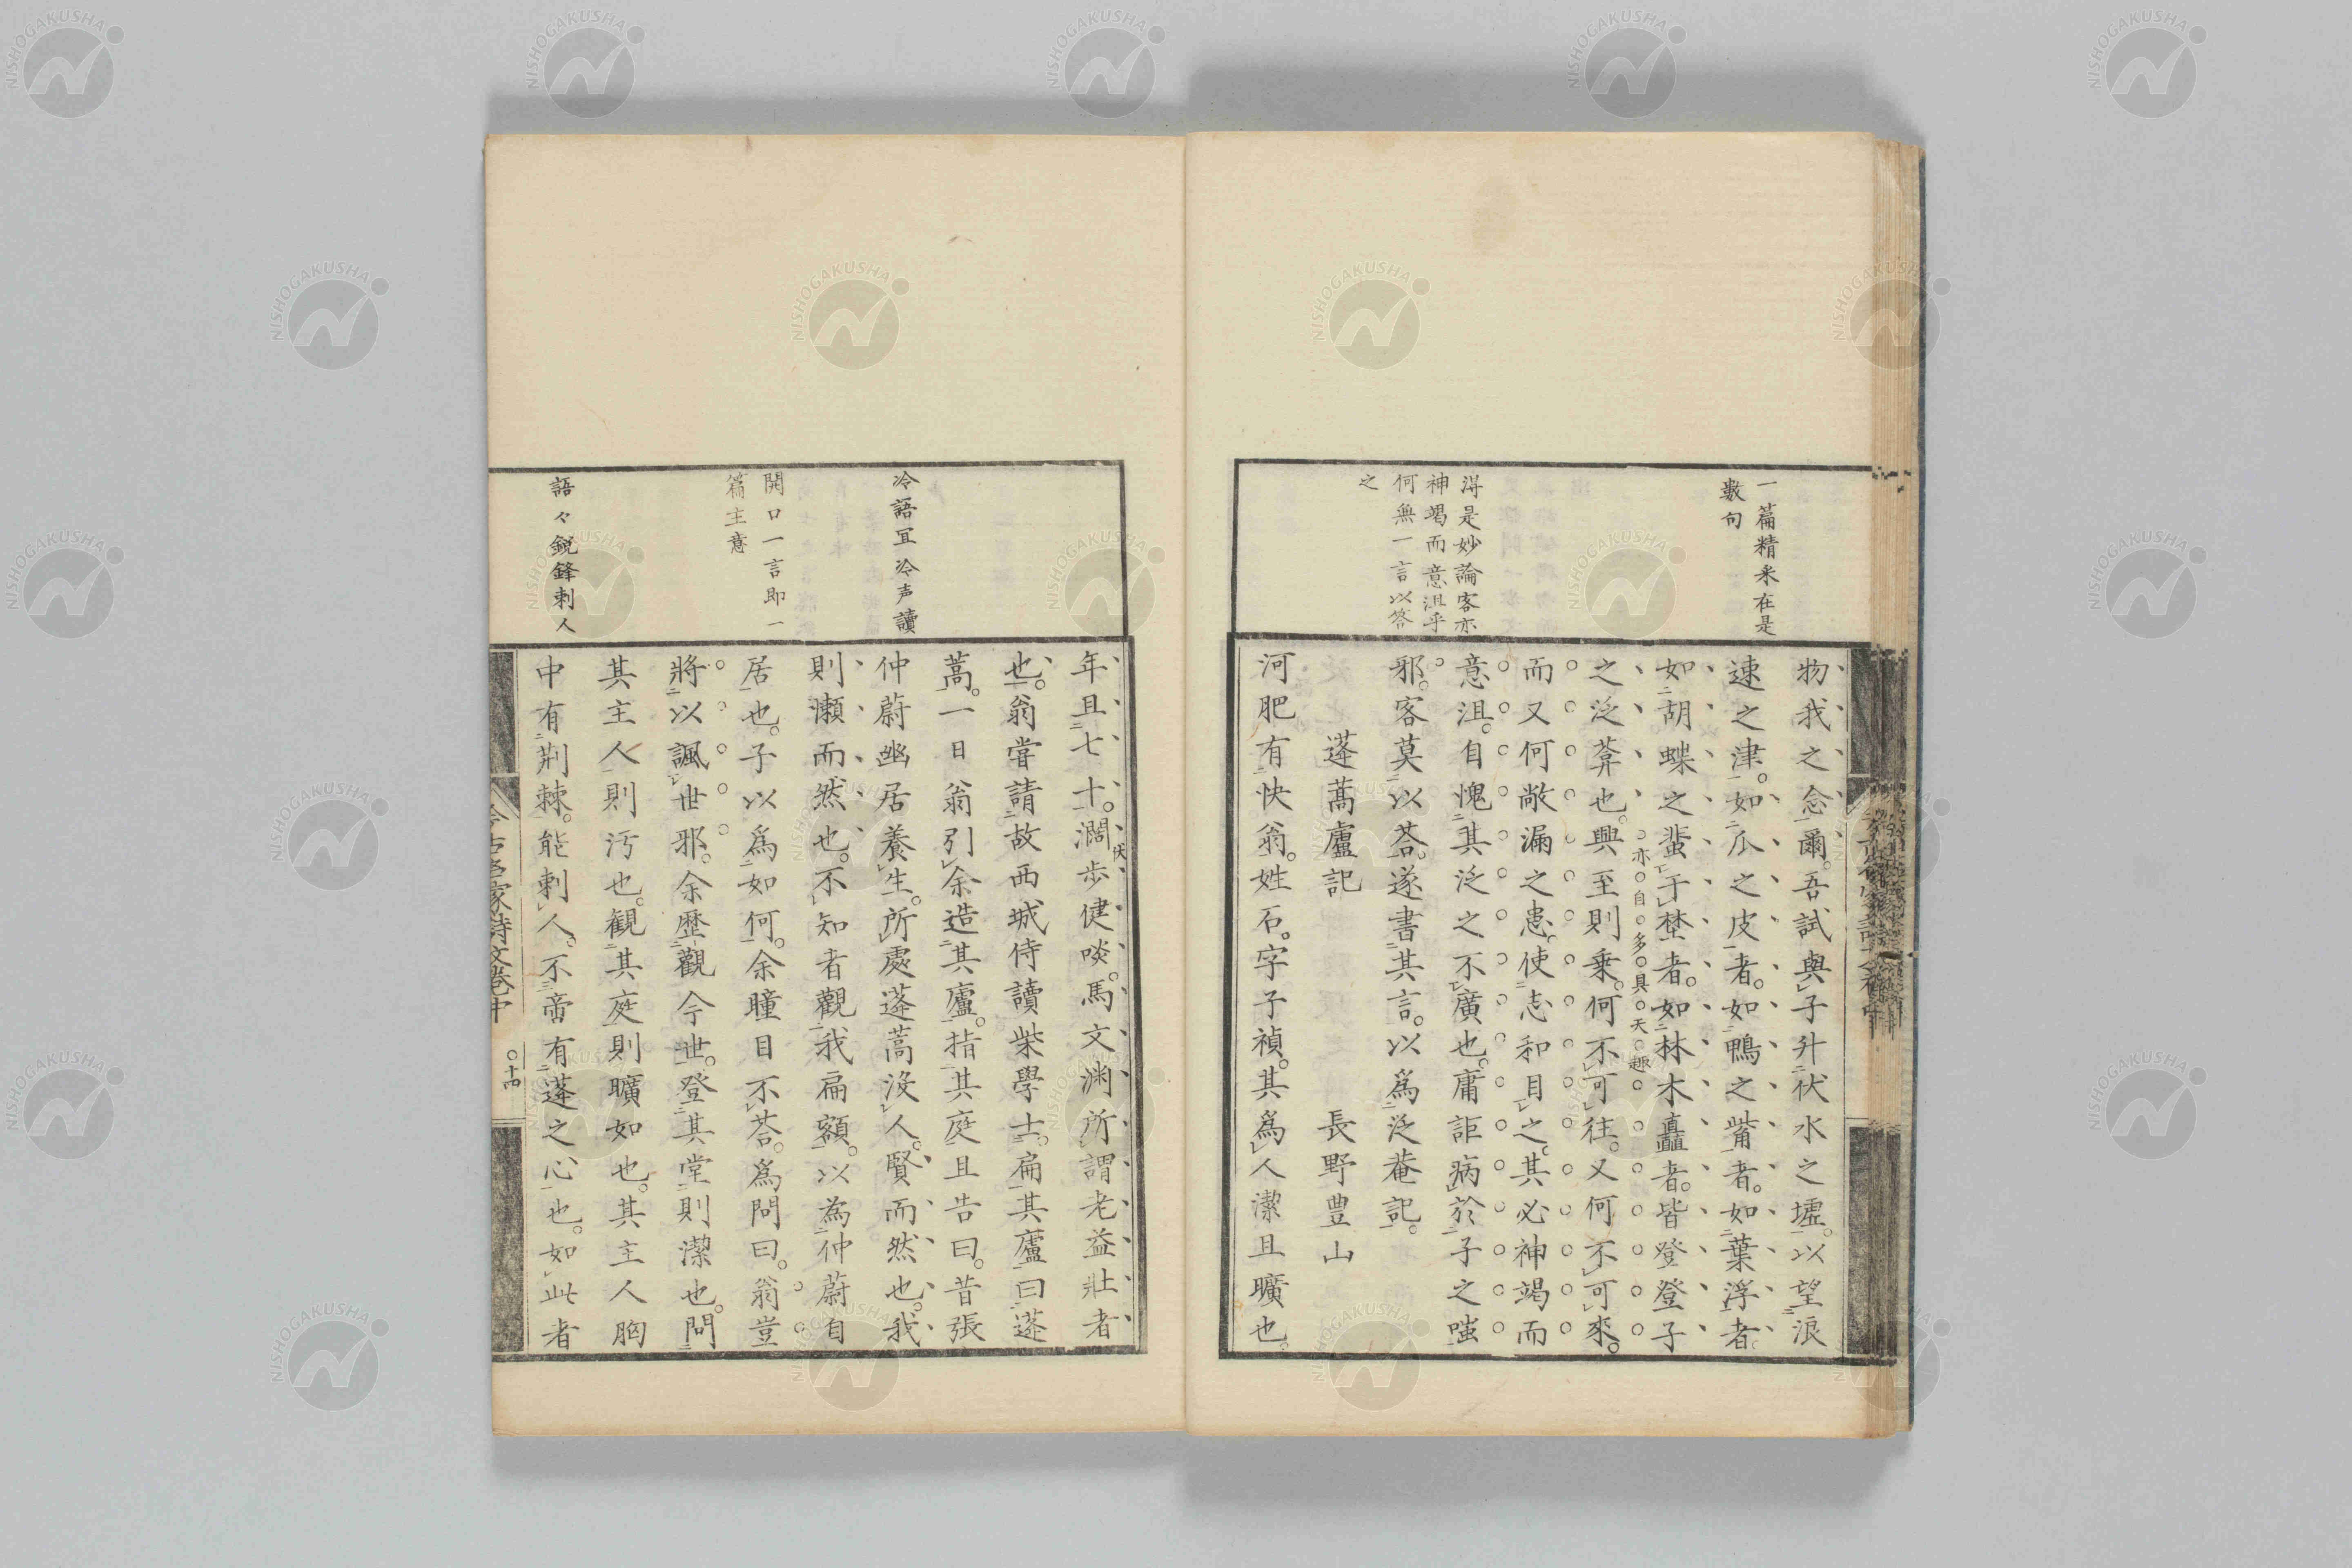 一篇精采在是
數句
得是妙論客亦
神竭而意沮乎
何無一言以答
之
物我之念爾。吾試與子升伏水之墟。以望浪
速之津。如瓜之皮者。如鴨之觜者。如葉浮者。
如胡蝶之蜚于埜者。如林木矗者。皆登登子
之泛葊也。興至則乗。何不可往。又何不可來。
亦自多具天趣
而又何敞漏之患。使志和目之。其必神竭而
意沮。自愧其泛之不廣也。庸詎病於子之嗤
邪。客莫以荅。遂書其言。以爲泛菴記。
蓬蒿廬記 長野豊山
河肥有快翁。姓石。字子禎。其爲人潔且曠也。
冷語冝冷声讀
開口一言即一
篇主意
語々鋭鋒刺人
年且七十。濶歩健啖。馬文渊所謂老益壯者
伏
也。翁甞請故西城侍讀柴學士。扁其廬曰蓬
蒿。一日翁引余造其廬。指其庭且告曰。昔張
仲蔚幽居養生。所處蓬蒿沒人。賢而然也。我
則懶而然也。不知者觀我扁額。以為仲蔚自
居也。子以爲如何。余瞳目不荅。爲問曰。翁豈
將以諷世邪。余歷觀今世。登其堂則潔也。問
其主人則汚也。観其庭則曠如也。其主人胸
中有荆棘。能刺人。不啻有蓬之心也。如此者
今古名家詩文卷中
十四